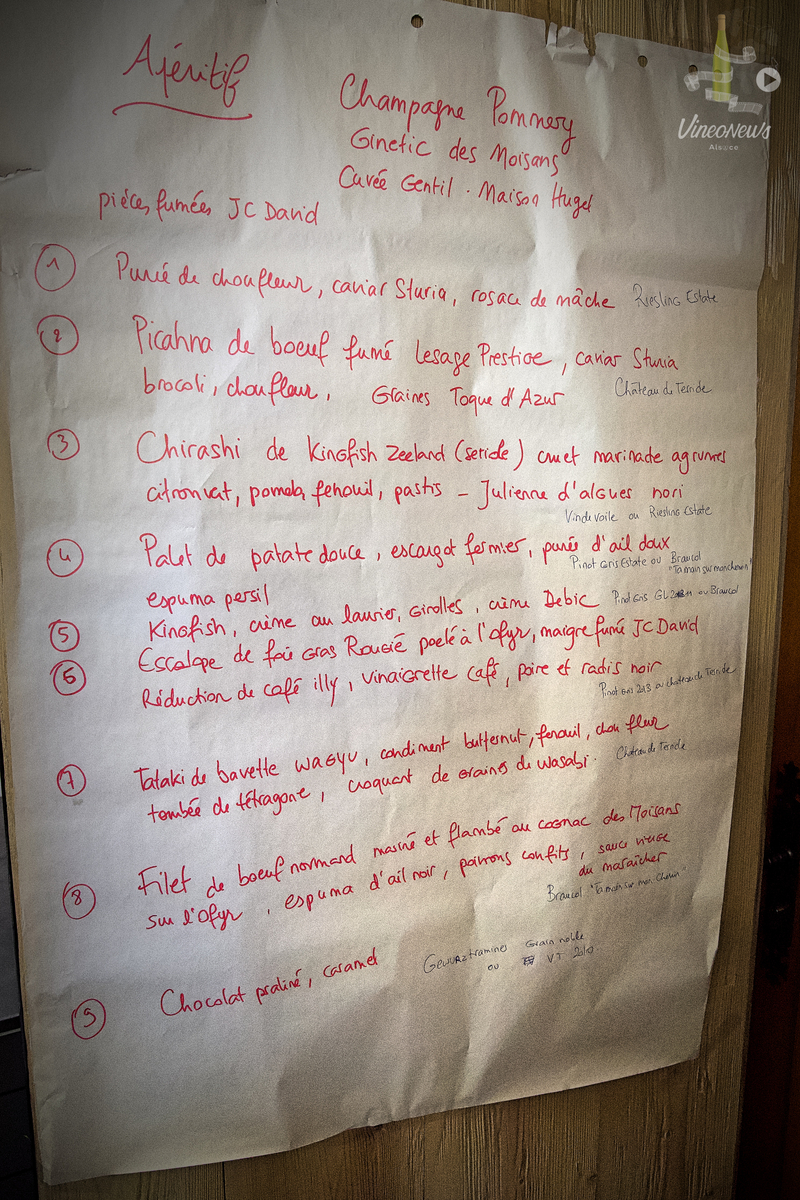 Apéritif
Champagne Pommery
Ginetic des Moisans
Cuvée Gentil. Maison Hugel
pièces fumées JC David
1 Purée de choufleur, caviar Sturia, rosace de mâche Riesling Estate
2 Picahna de boeuf fumé Lesage Prestige, caviar Sturia
brocoli, choufleur, Graines Toque d'Azur Château de Terride
3 Chirashi de Kingfish Zeeland (seriole) cru et marinade agrumes
citron vat, pomelo, fenouil, pastis - Julienne d'algues nori
Vin de voile ou Riesling Estate
4 Palet de patate douce, escargot fermier, purée d'ail doux
Pinot Gris Estate ou Braucol
"Ta main sur mon chemin"
espuma persil
5 Kingfish, crème au laurier, Girolles, crème Debic Pinot Gris GL ou Braucol
6 Escalope de foie Gras Rougié poelé à l'ofyr, maigre fumé JC David
Réduction de café illy, vinaigrette café, poire et radis noir
Pinot Gris 2013 ou chateau de Terride
7 Tataki de bavette WAGYU, condiment butternut, fenouil, chou fleur
tombée de tétragone, croquant de Graines de wasabi. Chateau de Terride
8 Filet de boeuf normand mariné et flambé au cognac des Moisans
sur l'Ofyr, espuma d'ail noir, poivrons confits, sauce vierge
du maraîcher
Braucol "Ta main sur mon chemin"
9 Chocolat praliné, caramel Gewurztraminer Grain noble
ou VT 2010
VINEONEWS
Alsace